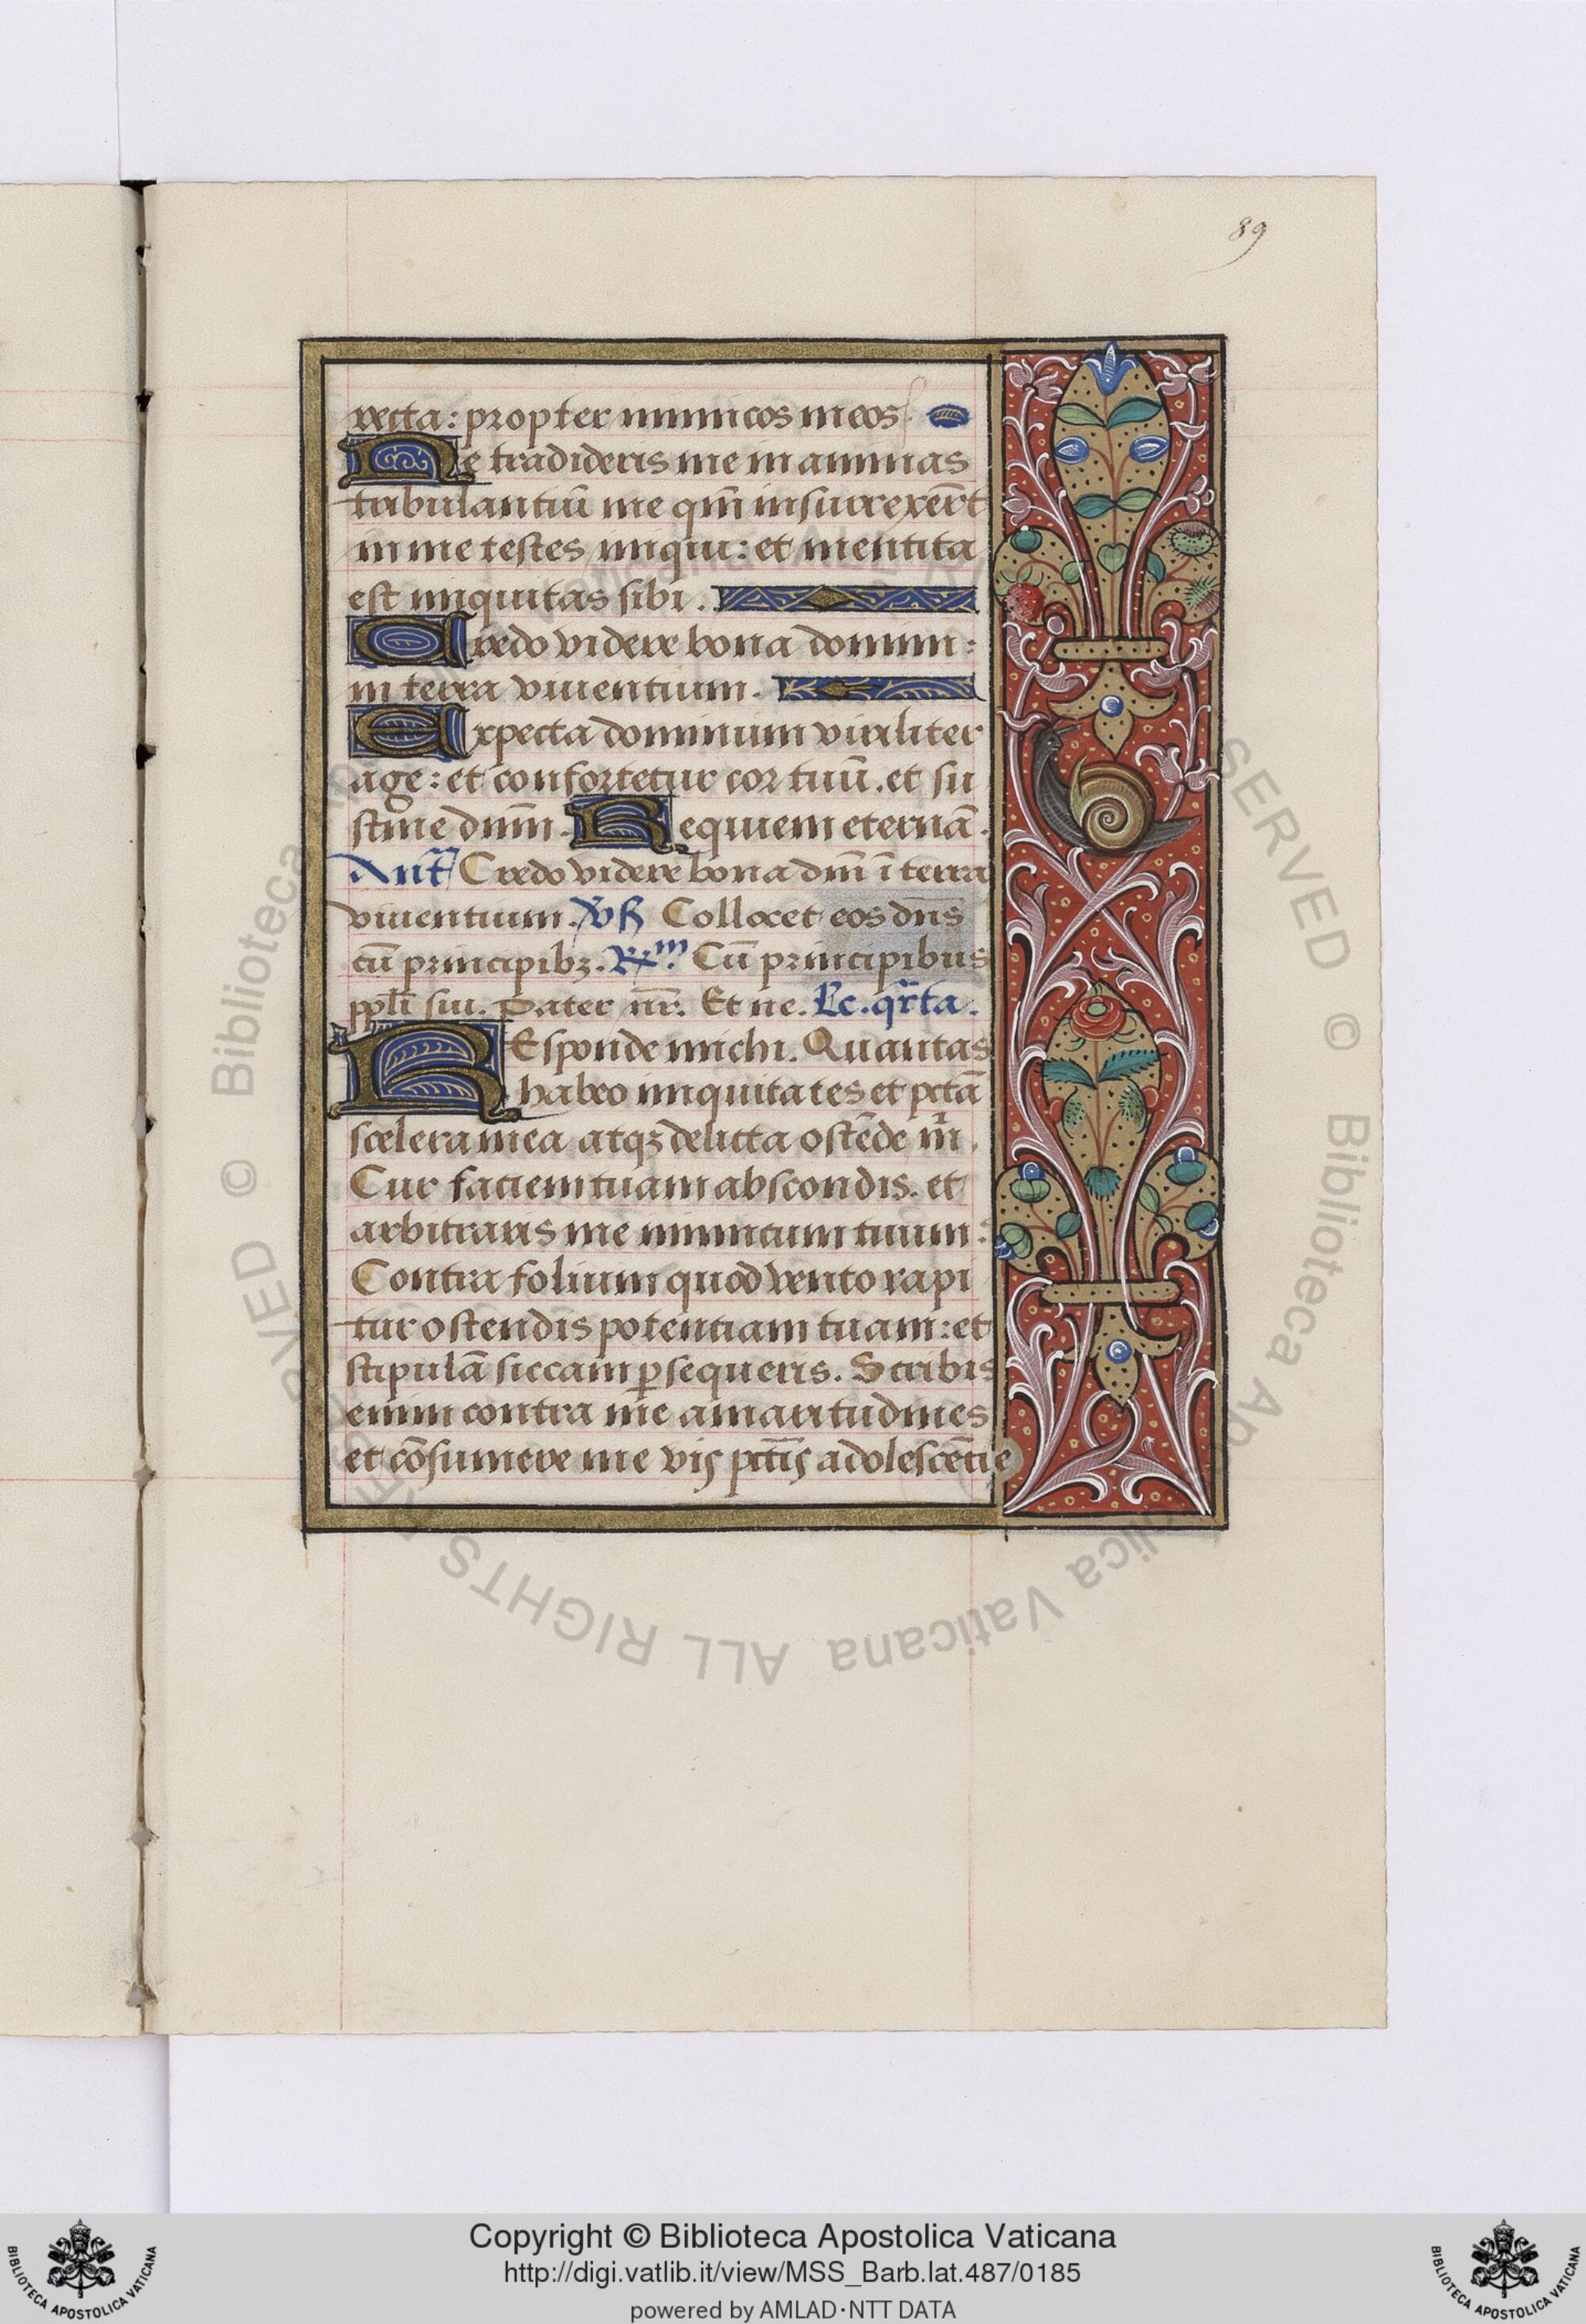 89
recta: propter inimicos meos.
Ne tradideris me in animas
tribulantiū me qm̄ insurrexerūt
in me testes iniqui: et mentita
est iniquitas sibi.
Credo videre bona domini:
in terra viuentium.
Expecta dominum viriliter
age: et confortetur cor tuū. et su
stine dnm̄. Requiem eternā.
Ant̄ Credo videre bona dm̄ ī terra
viuentium. Vſ Collocet eos dn̄s
cū principibꝫ. Rx̄m. Cū principibus
ppli sui. Pater nr̄. Et ne. Lc. qr̄ta.
REsponde michi. Quantas
habeo iniquitates et pctā
scelera mea atqꝫ delicta ostēde m̄.
Cur faciem tuam abscondis. et
arbitraris me inimicum tuum:
Contra folium quod vento rapi
tur ostendis potentiam tuam: et
stipulā siccam ꝑsequeris. Scribis
enim contra me amaritudines
et cōsumere me vis pctīs adolescētie
© Biblioteca Apostolica Vaticana ALL RIGHTS RESERVED
Copyright © Biblioteca Apostolica Vaticana
http://digi.vatlib.it/view/MSS_Barb.lat.487/0185
powered by AMLAD·NTT DATA
BIBLIOTECA APOSTOLICA VATICANA
BIBLIOTECA APOSTOLICA VATICANA